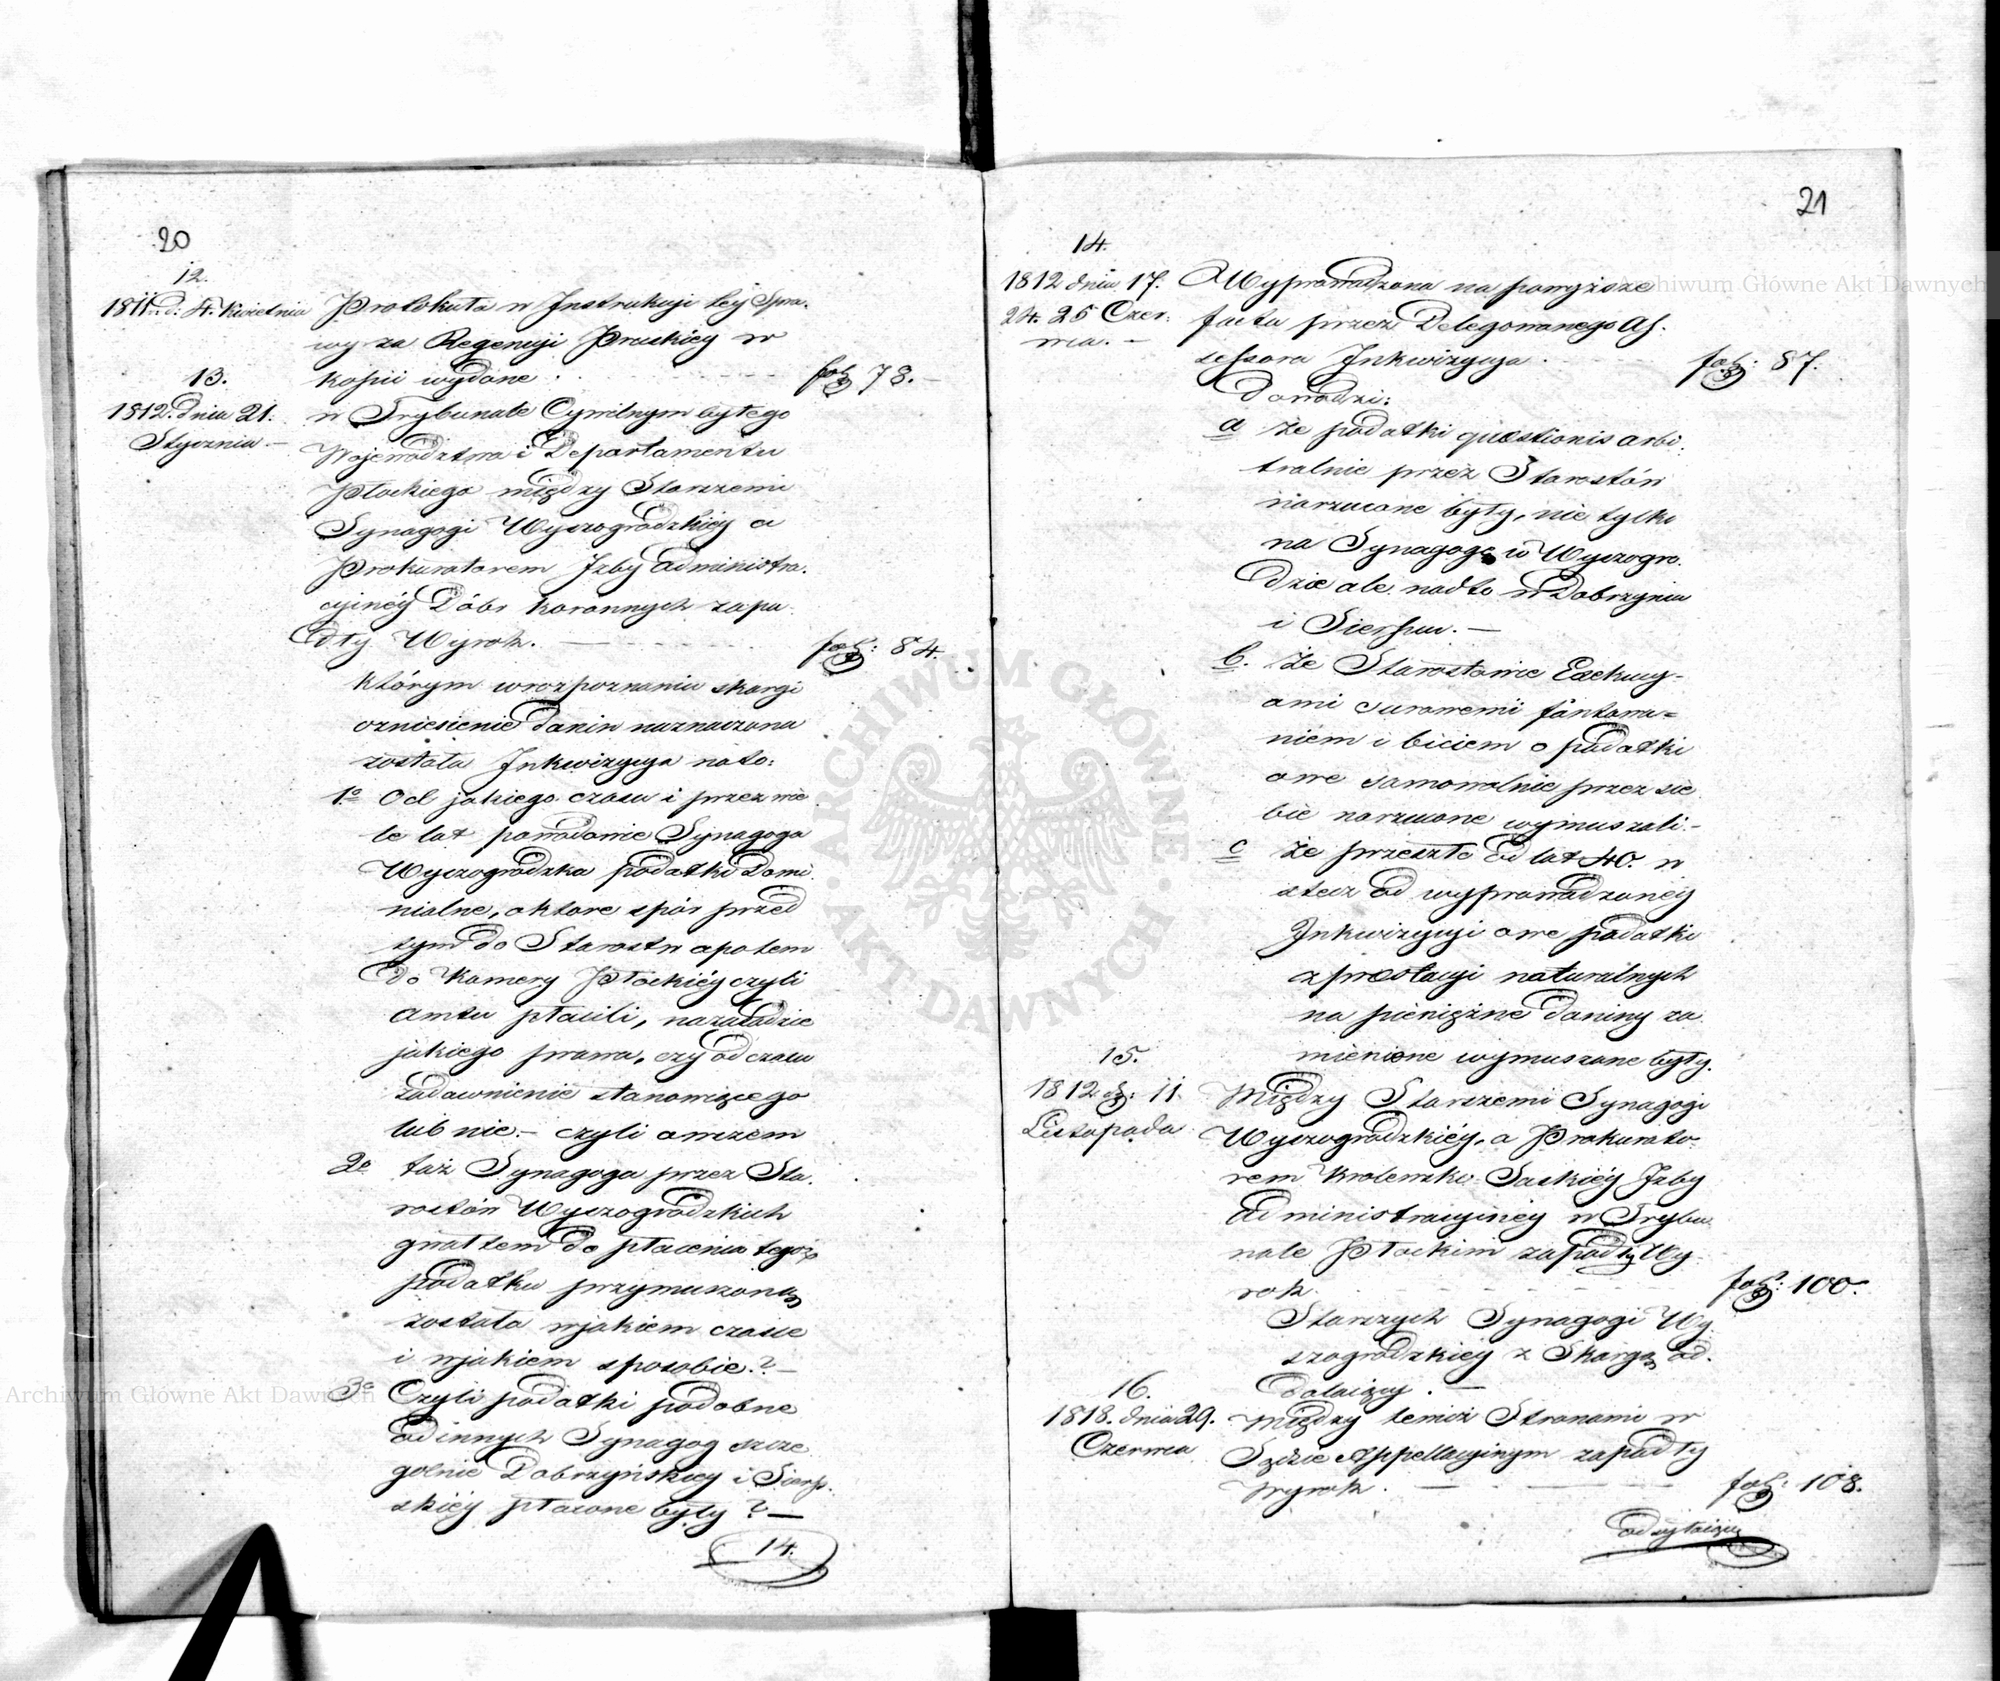 20
12.
1811. d: 4. Kwietnia Protokuta w Instrukcyi tey Spra.
wy za Regencyi Pruskiey w
kopii wydane . fol: 78.
13.
1812. dnia 21. w Trybunale Cywilnym byłego
Stycznia.— Wojewodztwa i Departamentu
Płockiego między Starszemi
Synagogi Wyszogrodzkiéy a
Prokuratorem Izby Administra.
cyinéy Dóbr koronnych zapa.
dły Wyrok. — fol: 84.
którym w rozpoznaniu skargi
o zniesienie danin naznaczona
została Inkwizycya na to:
1o Od jakiego czasu i przez wie
le lat powodowie Synagoga
Wyszogrodzka podatki Domi.
nialne, o które spór przed
tym do Starostw a potem
do Kamery Płockiéy czyli
Amtu płacili, na zasadzie
jakiego prawa, czy od czasu
zadawnienie stanowiącego
lub nie.— czyli owszem
2o taż Synagoga przez Sta.
rostów Wyszogrodzkich
gwałtem do płacenia tegoż
podatku przymuszoną
została w jakiem czasie
i w jakiem sposobie.?—
3o Czyli podatki podobne
od innych Synagog szcze
golnie Dobrzyńskiey i Sierp.
skiéy płacone były ?—
14.
21
14.
1812 dnia 17. Wyprowadzona na powyższe
24. 25 Czer. facta przez Delegowanego As.
wca. — sessora Inkwizycya . fol: 87.
Dowodzi:
a że podatki quaestionis arbi.
tralnie przez Starostów
narzucane były, nie tylko
na Synagogę w Wyszogro.
dzie ale nadto w Dobrzyniu
i Sierpcu.—
b. że Starostowie Exekucy-
ami surowemi fantowa=
niem i biciem o podatki
owe samowolnie przez sie
bie narzucone wymuszali.—
c że przeszło od lat 40. w
stecz od wyprowadzonéy
Inkwizycyi owe podatki
z prestacyi naturalnych
na pieniężne daniny za.
mienione wymuszane były.
15.
1812 d: 11. Między Starszemi Synagogi
Listopada Wyszogrodzkiéy, a Prokurato.
rem Krolewsko Saskiéy Izby
Administracyinéy w Trybu.
nale Płockim zapadły Wy.
rok. fol: 100.
Starszych Synagogi Wy.
szogrodzkiéy z Skargą od.
dalaiący . —
16.
1818. dnia 29. Między temiż Stronami w
Czerwca Sądzie Appellacyinym zapadły
Wyrok . — fol: 108.
odsyłaiący
Archiwum Główne Akt Dawnych
Archiwum Główne Akt Dawnych
ARCHIWUM GŁÓWNE · AKT DAWNYCH ·